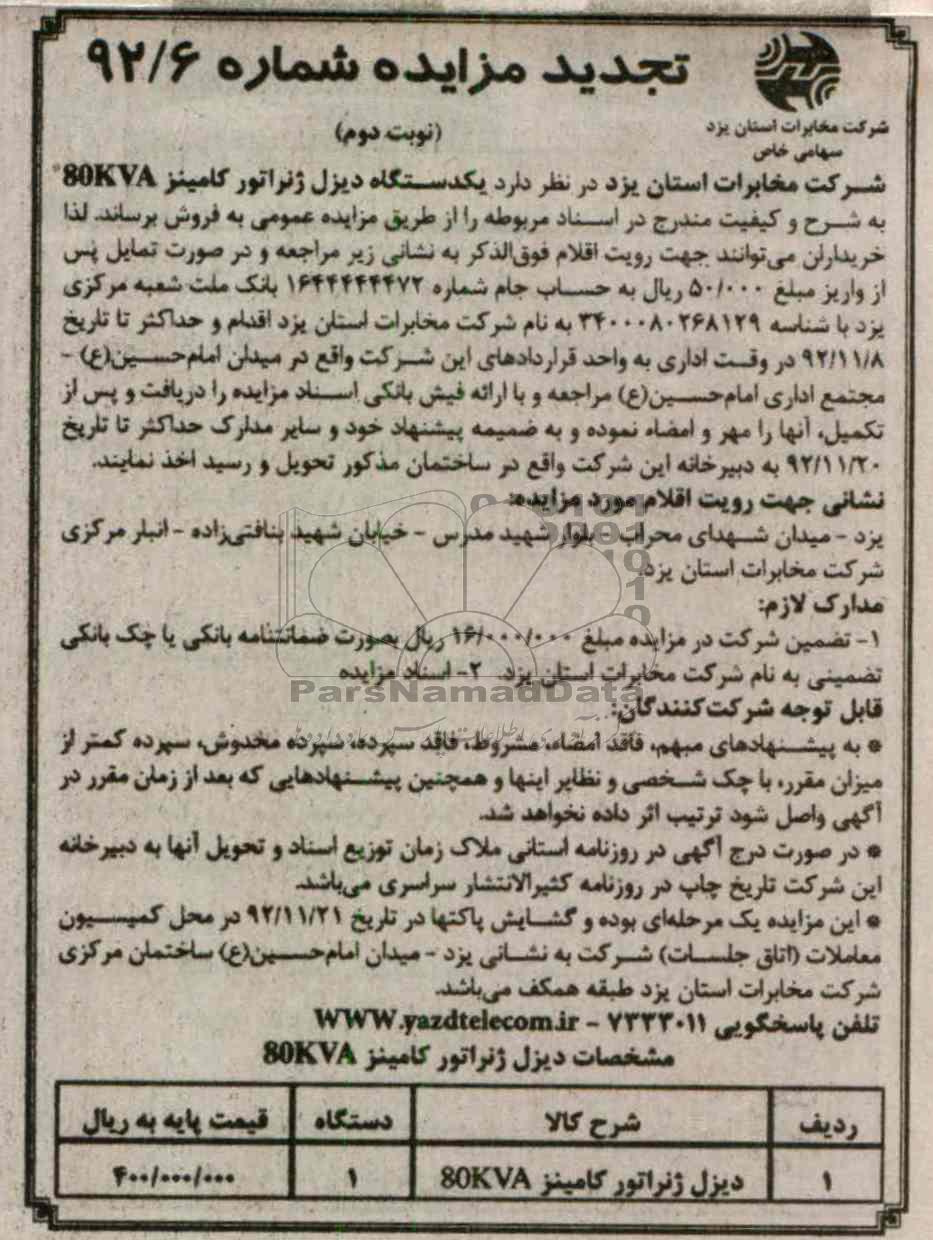 تجدید مزایده شماره ۹۲/۶
شرکت مخابرات استان یزد
سهامی خاص
(نوبت دوم)
شرکت مخابرات استان یزد در نظر دارد یکدستگاه دیزل ژنراتور کامینز 80KVA
به شرح و کیفیت مندرج در اسناد مربوطه را از طریق مزایده عمومی به فروش برساند. لذا
خریداران می‌توانند جهت رویت اقلام فوق‌الذکر به نشانی زیر مراجعه و در صورت تمایل پس
از واریز مبلغ ۵۰/۰۰۰ ریال به حساب جام شماره ۱۶۴۴۴۴۴۴۷۲ بانک ملت شعبه مرکزی
یزد با شناسه ۳۴۰۰۰۸۰۲۶۸۱۲۹ به نام شرکت مخابرات استان یزد اقدام و حداکثر تا تاریخ
۹۲/۱۱/۸ در وقت اداری به واحد قراردادهای این شرکت واقع در میدان امام‌حسین(ع) -
مجتمع اداری امام‌حسین(ع) مراجعه و با ارائه فیش بانکی اسناد مزایده را دریافت و پس از
تکمیل، آنها را مهر و امضاء نموده و به ضمیمه پیشنهاد خود و سایر مدارک حداکثر تا تاریخ
۹۲/۱۱/۲۰ به دبیرخانه این شرکت واقع در ساختمان مذکور تحویل و رسید اخذ نمایند.
نشانی جهت رویت اقلام مورد مزایده:
یزد - میدان شهدای محراب - بلوار شهید مدرس - خیابان شهید بنافتی‌زاده - انبار مرکزی
شرکت مخابرات استان یزد.
مدارک لازم:
۱- تضمین شرکت در مزایده مبلغ ۱۶/۰۰۰/۰۰۰ ریال بصورت ضمانتنامه بانکی یا چک بانکی
تضمینی به نام شرکت مخابرات استان یزد. ۲- اسناد مزایده
ParsNamadData
قابل توجه شرکت‌کنندگان:
* به پیشنهادهای مبهم، فاقد امضاء، مشروط، فاقد سپرده، سپرده مخدوش، سپرده کمتر از
میزان مقرر، با چک شخصی و نظایر اینها و همچنین پیشنهادهایی که بعد از زمان مقرر در
آگهی واصل شود ترتیب اثر داده نخواهد شد.
* در صورت درج آگهی در روزنامه استانی ملاک زمان توزیع اسناد و تحویل آنها به دبیرخانه
این شرکت تاریخ چاپ در روزنامه کثیرالانتشار سراسری می‌باشد.
* این مزایده یک مرحله‌ای بوده و گشایش پاکتها در تاریخ ۹۲/۱۱/۲۱ در محل کمیسیون
معاملات (اتاق جلسات) شرکت به نشانی یزد - میدان امام‌حسین(ع) ساختمان مرکزی
شرکت مخابرات استان یزد طبقه همکف می‌باشد.
تلفن پاسخگویی ۷۲۳۳۰۱۱ - WWW.yazdtelecom.ir
مشخصات دیزل ژنراتور کامینز 80KVA
ردیف شرح کالا دستگاه قیمت پایه به ریال
۱ دیزل ژنراتور کامینز 80KVA ۱ ۴۰۰/۰۰۰/۰۰۰